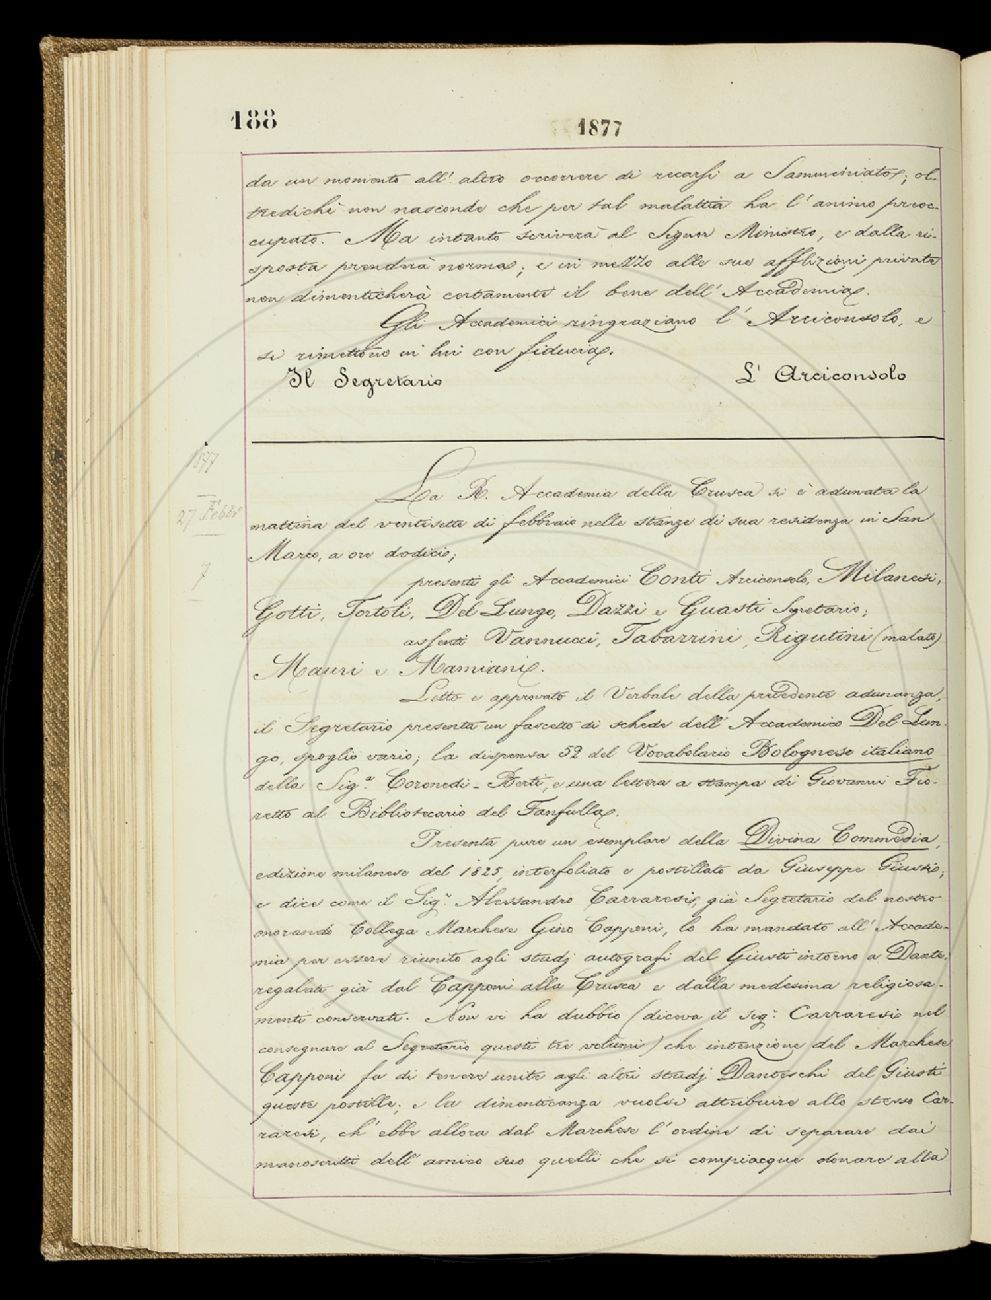 188
1877
da un momento all' altro occorrere di recarsi a Samminiato; ol-
tredichè non nasconde che per tal malattia ha l' animo preoc-
cupato. Ma intanto scriverà al Signor Ministro, e dalla ri-
sposta prenderà norma; e in mezzo alle sue afflizioni private
non dimenticherà certamente il bene dell' Accademia.
Gli Accademici ringraziano l' Arciconsolo, e
si rimettono in lui con fiducia.
Il Segretario L' Arciconsolo
1877
27 Febbr
7
La R. Accademia della Crusca si è adunata la
mattina del ventisette di febbraio nelle stanze di sua residenza in San
Marco, a ore dodici;
presenti gli Accademici Conti Arciconsolo, Milanesi,
Gotti, Tortoli, Del Lungo, Dazzi e Guasti Segretario;
assenti Vannucci, Tabarrini, Rigutini (malato)
Mauri e Mamiani.
Letto e approvato il Verbale della precedente adunanza,
il Segretario presenta un fascetto di schede dell' Accademico Del Lun-
go, spoglio vario; la dispensa 52 del Vocabolario Bolognese italiano
della Sig.ª Coronedi-Berti, e una lettera a stampa di Giovanni Fio-
retto al Bibliotecario del Fanfulla.
Presenta pure un esemplare della Divina Commedia,
edizione milanese del 1825, interfoliato e postillato da Giuseppe Giusti;
e dice come il Sig.r Alessandro Carraresi, già Segretario del nostro
morando Collega Marchese Gino Capponi, lo ha mandato all' Accade-
mia per essere riunito agli studj autografi del Giusti intorno a Dante,
regalati già dal Capponi alla Crusca e dalla medesima religiosa-
mente conservati. Non vi ha dubbio (diceva il Sig.r Carraresi nel
consegnare al Segretario questi tre volumi) che intenzione del Marchese
Capponi fu di tenere unite agli altri studj Danteschi del Giusti
queste postille; e la dimenticanza vuolsi attribuire allo stesso Car-
raresi, ch' ebbe allora dal Marchese l' ordine di separare dai
manoscritti dell' amico suo quelli che si compiacque donare alla